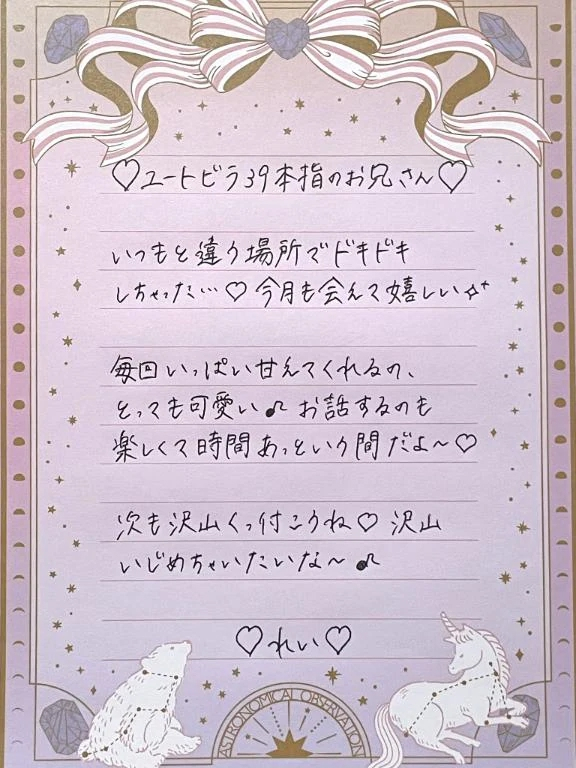 ♡ユートピラ39本指のお兄さん♡
いつもと違う場所でドキドキ
しちゃった…♡今月も会えて嬉しい✧⁺
毎回いっぱい甘えてくれるの、
とっても可愛い♪お話するのも
楽しくて時間あっという間だよ〜♡
次も沢山くっ付こうね♡沢山
いじめちゃいたいな〜♪
♡れい♡
ASTRONOMICAL OBSERVATION